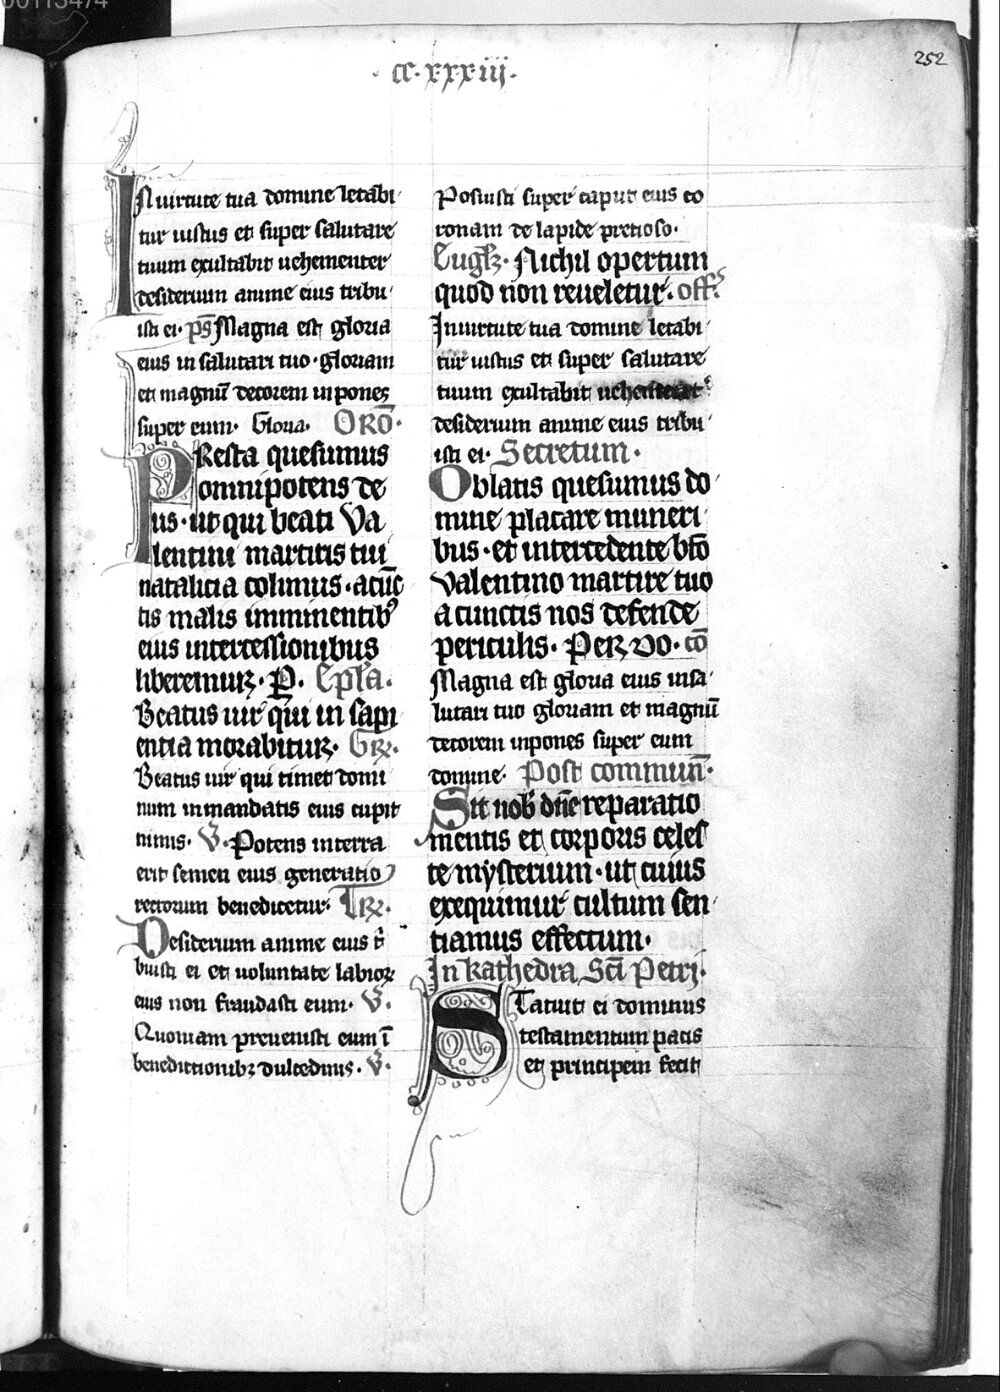 00113474
252
· cc · xxxiii ·
In uirtute tua domine letabi
tur iustus et super salutare
tuum exultabit uehementer
desiderium anime eius tribu
isti ei · ps̄ Magna est gloria
eius in salutari tuo · gloriam
et magnū decorem inpones
super eum · Gloria · ORŌ ·
PResta quesumus
omnipotens de
us · ut qui beati Va
lentini martiris tui
natalicia colimus · a cūc
tis malis imminentibꝰ
eius intercessionibus
liberemur · P. Epl̄a ·
Beatus uir qui in sapi
entia morabitur · Gꝶ ·
Beatus uir qui timet domi
num in mandatis eius cupit
nimis · V̄ · Potens in terra
erit semen eius generatio
rectorum benedicetur · Tꝶ ·
Desiderium anime eius t̄ͥ
buisti ei et uoluntate labioꝝ
eius non fraudasti eum · V̄ ·
Quoniam preuenisti eum ī
benedictionibꝫ dulcedinis · V̄ ·
Posuisti super caput eius co
ronam de lapide precioso ·
Eugłꝫ · Nichil opertum
quod non reueletur · off ·
In uirtute tua domine letabi
tur iustus et super salutare
tuum exultabit uehementer
desiderium anime eius tribu
isti ei · Secretum ·
Oblatis quesumus do
mine placare muneri
bus · et intercedente bt̄o
Valentino martire tuo
a cunctis nos defende
periculis · PER DO · cō
Magna est gloria eius in sa
lutari tuo gloriam et magnū
decorem inpones super eum
domine · Post commun̄ ·
Sit nob̄ dn̄e reparatio
mentis et corporis celes
te mysterium · ut cuius
exequimur cultum sen
tiamus effectum ·
In kathedra Sc̄i Petri ·
STatuit ei dominus
testamentum pacis
et principem fecit